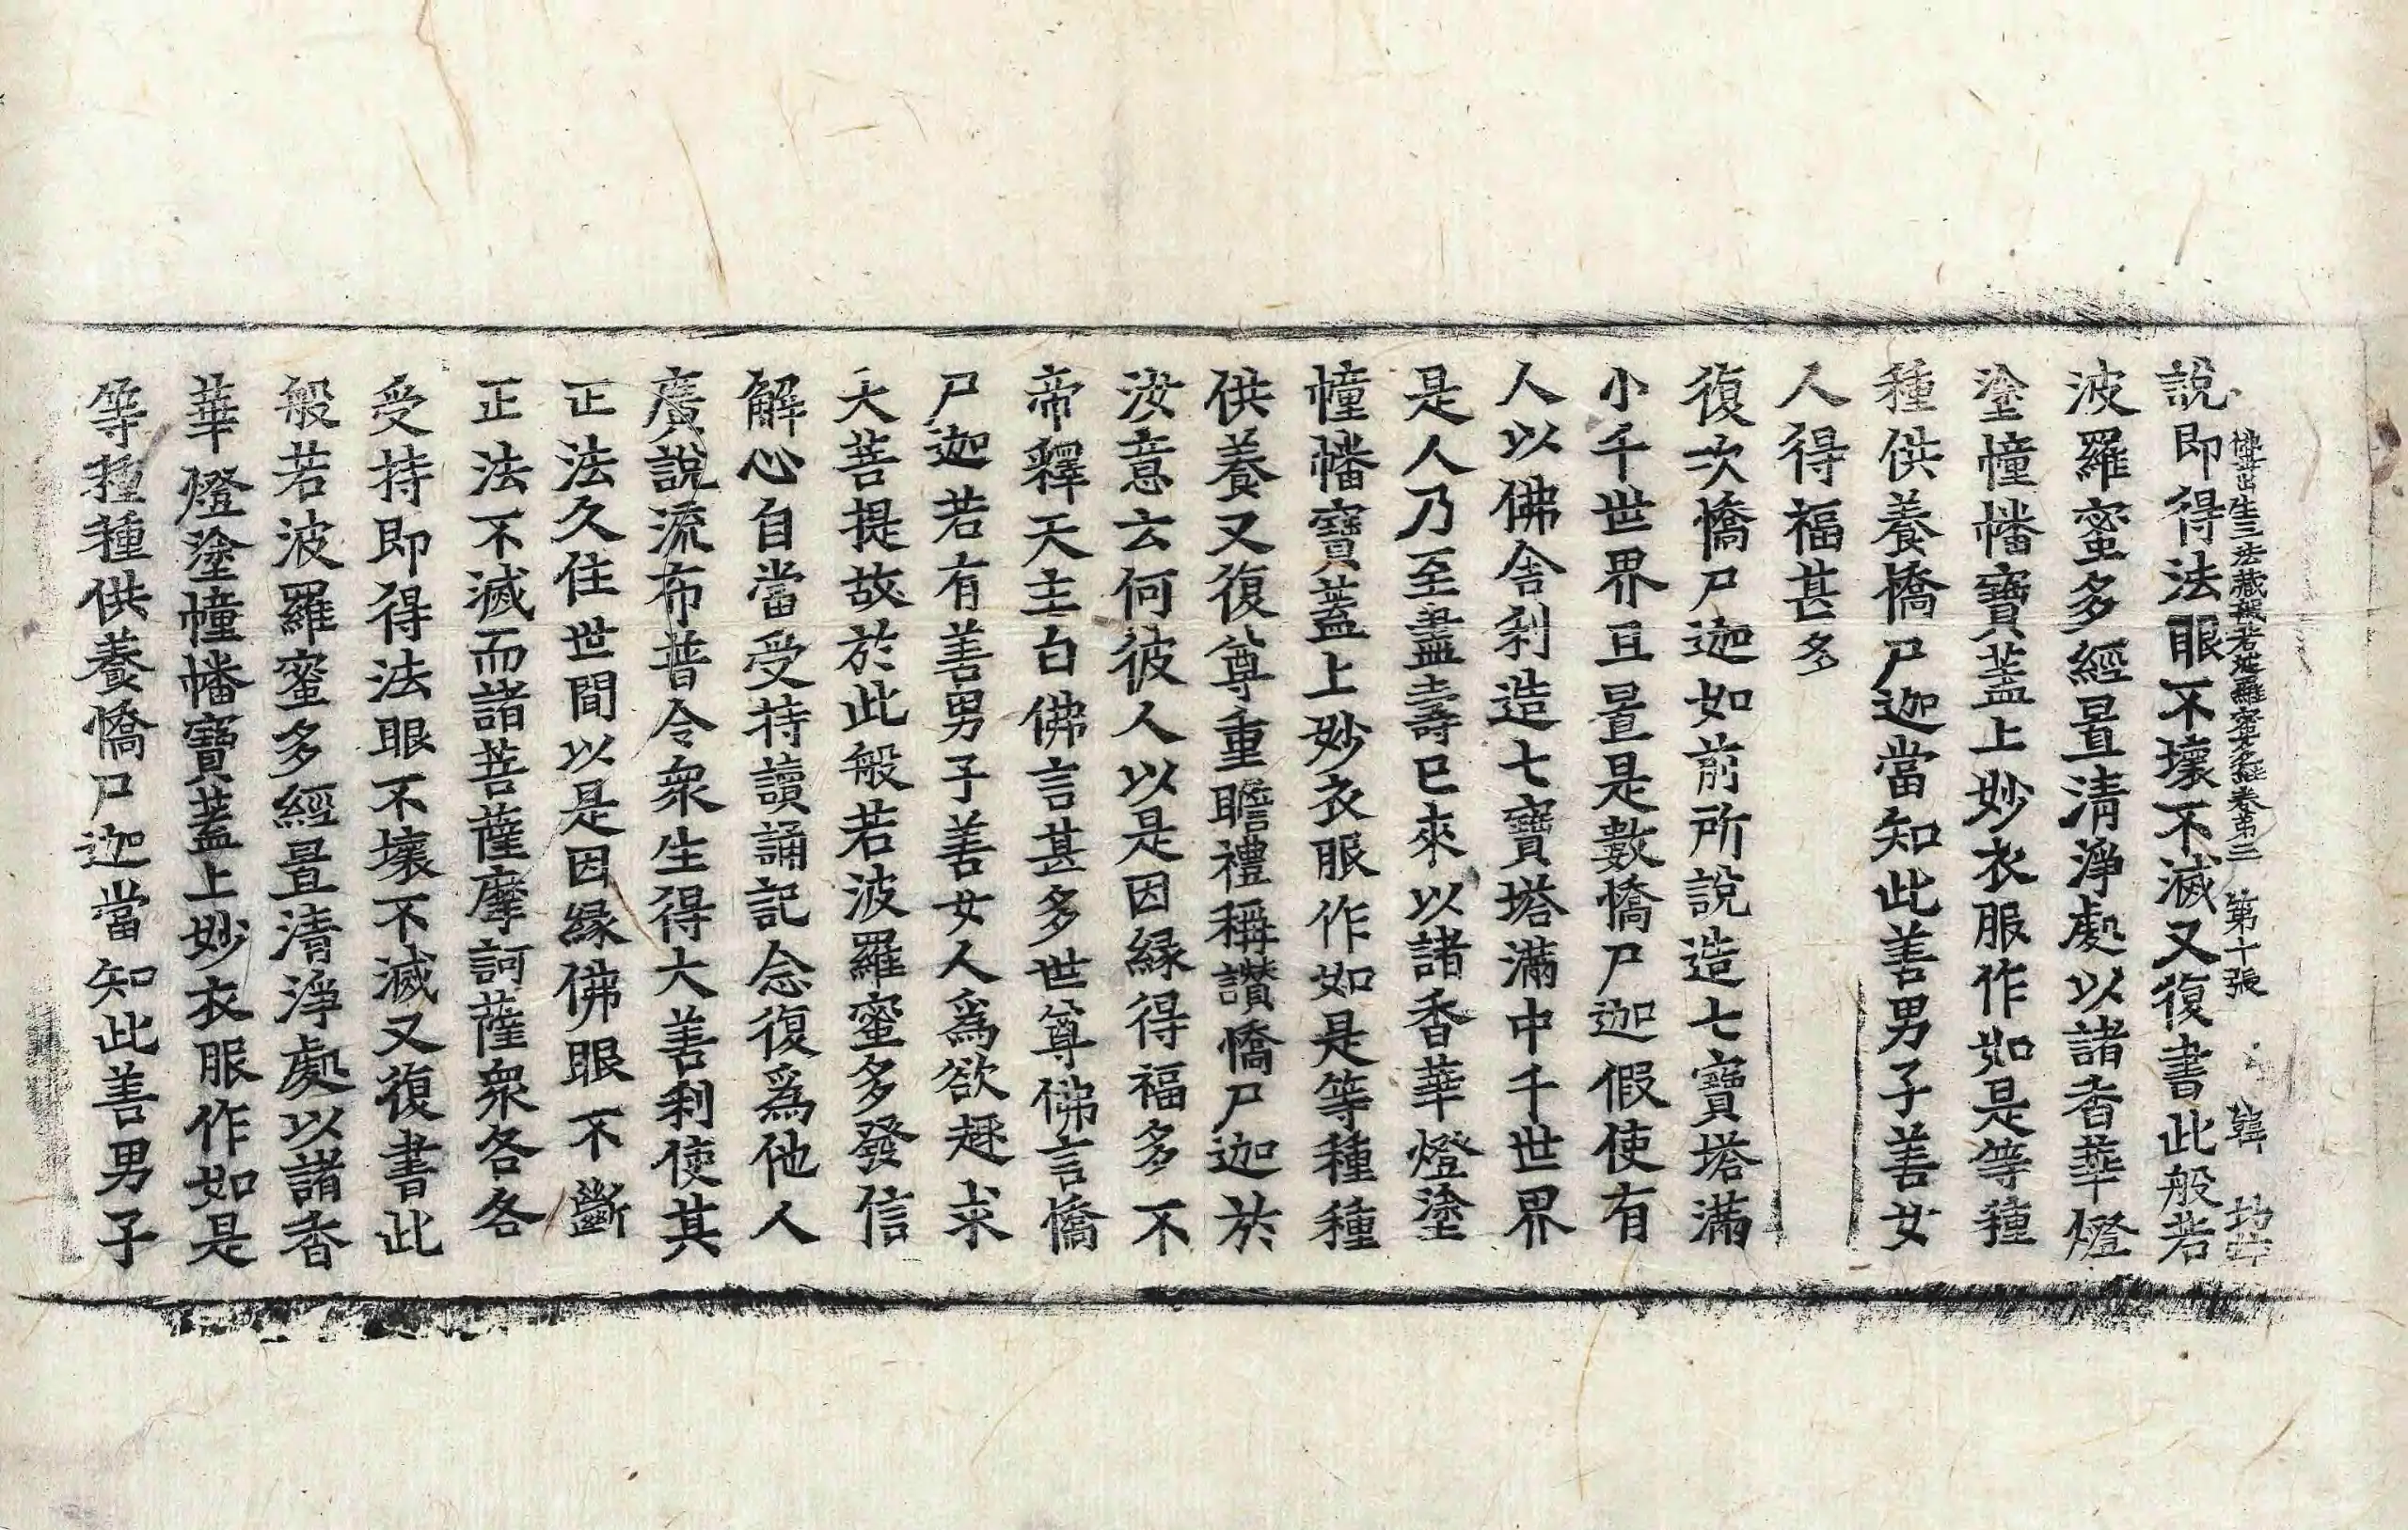 佛母出生三法藏般若波羅蜜多經卷第三 第十張 韓
說即得法眼不壞不滅又復書此般若
波羅蜜多經置清淨處以諸香華燈
塗幢幡寶蓋上妙衣服作如是等種
種供養憍尸迦當知此善男子善女
人得福甚多
復次憍尸迦如前所說造七寶塔滿
小千世界且置是數憍尸迦假使有
人以佛舍利造七寶塔滿中千世界
是人乃至盡壽已來以諸香華燈塗
幢幡寶蓋上妙衣服作如是等種種
供養又復尊重瞻禮稱讚憍尸迦於
汝意云何彼人以是因緣得福多不
帝釋天主白佛言甚多世尊佛言憍
尸迦若有善男子善女人爲欲趣求
大菩提故於此般若波羅蜜多發信
解心自當受持讀誦記念復爲他人
廣說流布普令衆生得大善利使其
正法久住世間以是因緣佛眼不斷
正法不滅而諸菩薩摩訶薩衆各各
受持即得法眼不壞不滅又復書此
般若波羅蜜多經置清淨處以諸香
華燈塗幢幡寶蓋上妙衣服作如是
等種種供養憍尸迦當知此善男子